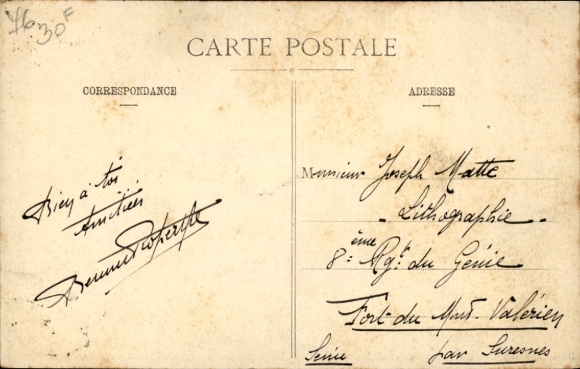 30F
CARTE POSTALE
CORRESPONDANCE
Bien à toi
Amitiés
ADRESSE
Monsieur Joseph Matte
- Lithographie -
8ème Rgt. du Génie
Fort du Mont-Valérien
Seine par Suresnes